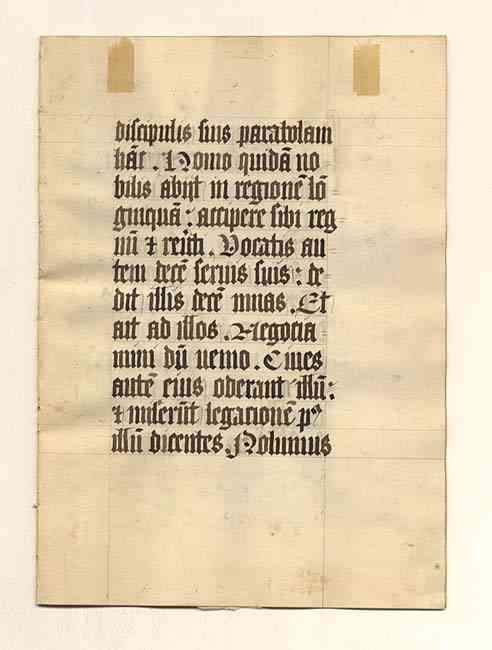 discipulis suis parabolam
hāc. Homo quidā no
bilis abijt in regionē lō
ginquā: accipere sibi reg
nū ⁊ reūti. Vocatis au
tem decē seruis suis: de
dit illis decē mnas. Et
ait ad illos. Negocia
mini dū uenio. Ciues
autē eius oderant illū:
⁊ miserūt legacionē pꝰ
illū dicentes. Nolumus